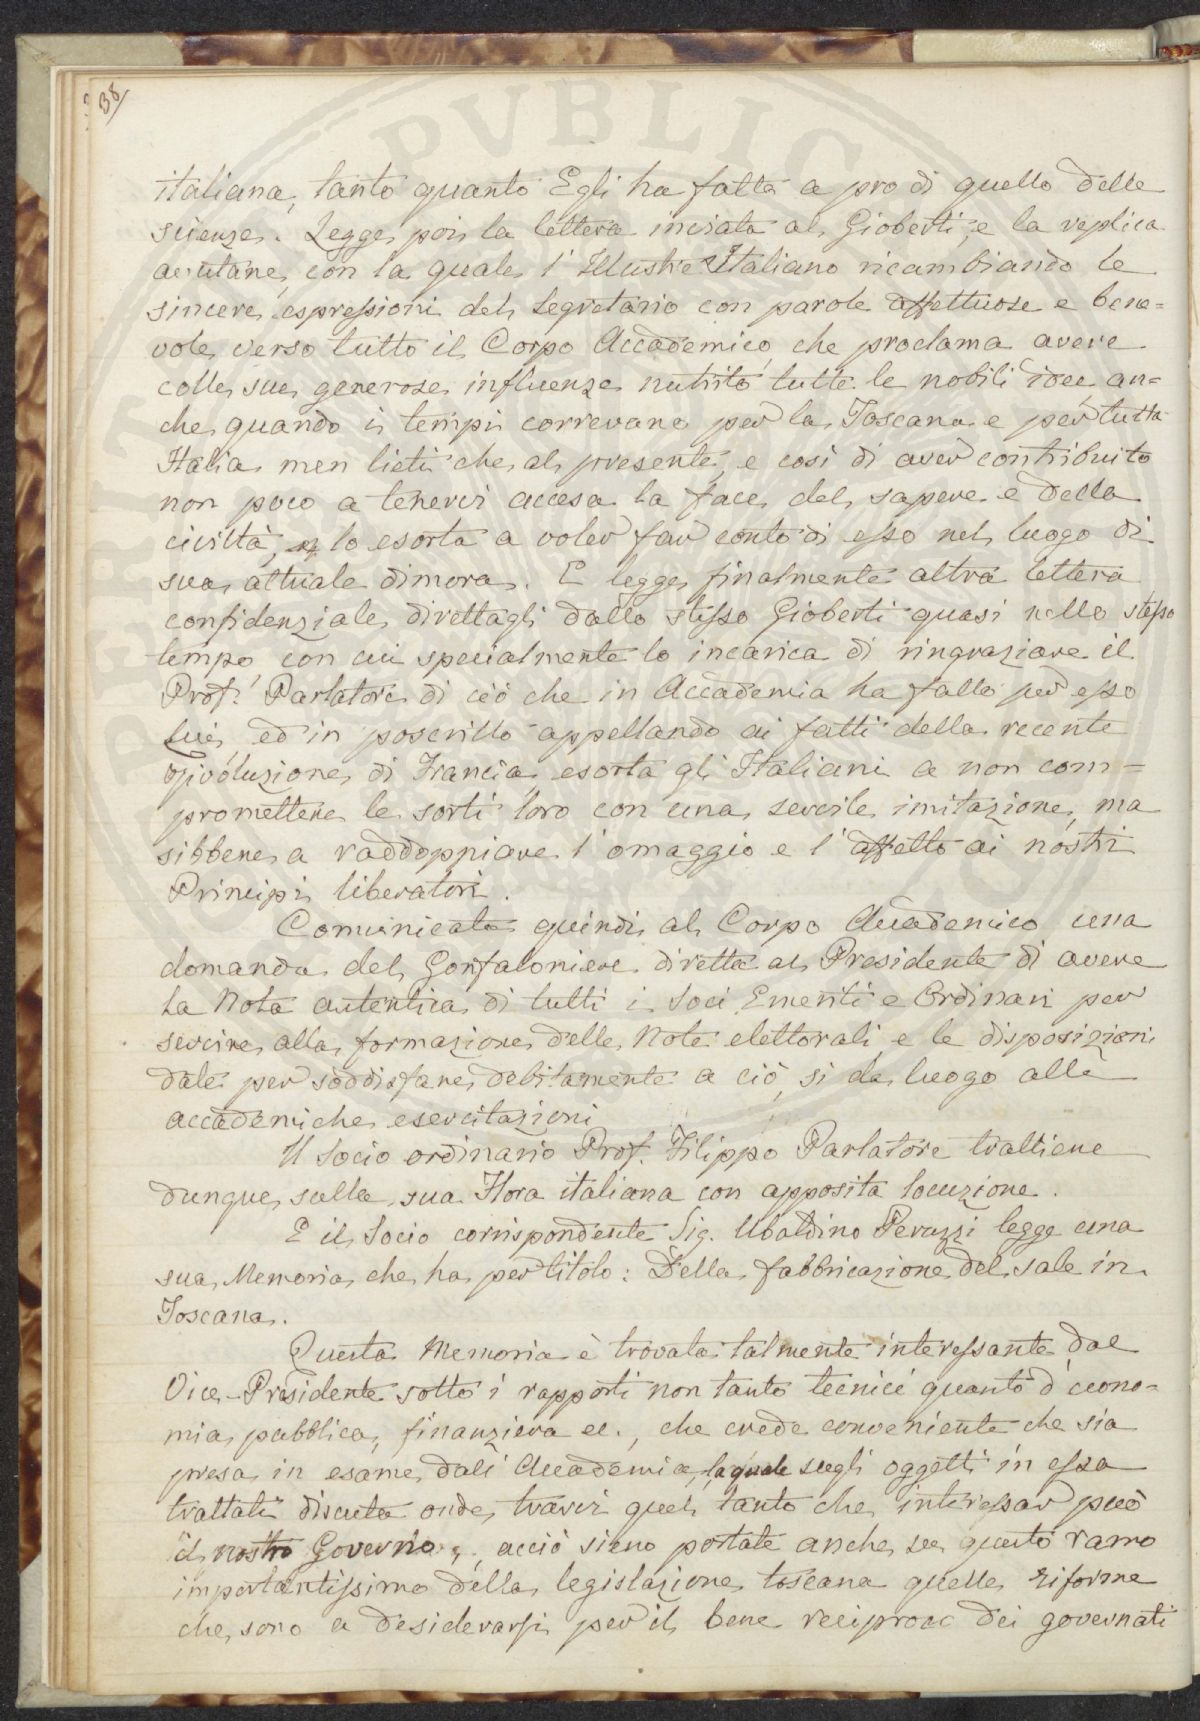 38/
italiana, tanto quanto Egli ha fatto a pro di quello delle
scienze. Legge poi la lettera inviata al Gioberti, e la replica
avutane, con la quale l'Illustre Italiano ricambiando le
sincere espressioni del Segretario con parole affettuose e bene=
vole verso tutto il Corpo Accademico che proclama avere
colle sue generose influenze nutrito tutte le nobili idee an=
che quando i tempi correvano per la Toscana e per tutta
Italia men lieti che al presente, e così di aver contribuito
non poco a tenervi accesa la face del sapere e della
civiltà, lo esorta a voler far conto di esso nel luogo di
sua attuale dimora. E legge finalmente altra lettera
confidenziale direttagli dallo stesso Gioberti quasi nello stesso
tempo con cui specialmente lo incarica di ringraziare il
Prof. Parlatore di ciò che in Accademia ha fatto per esso
Lui, ed in poscritto appellando ai fatti della recente
rivoluzione di Francia esorta gli Italiani a non com=
promettere le sorti loro con una servile imitazione, ma
sibbene a raddoppiare l'omaggio e l'affetto ai nostri
Principi liberatori.
Comunicata quindi al Corpo Accademico una
domanda del Gonfaloniere diretta al Presidente di avere
la Nota autentica di tutti i Soci Emeriti e Ordinari per
servire alla formazione delle Note elettorali e le disposizioni
date per soddisfare debitamente a ciò, si da luogo alle
accademiche esercitazioni
Il Socio ordinario Prof. Filippo Parlatore trattiene
dunque sulla sua Flora italiana con apposita locuzione.
E il Socio corrispondente Sig. Ubaldino Peruzzi legge una
sua Memoria che ha per titolo: Della fabbricazione del sale in
Toscana.
Questa Memoria è trovata talmente interessante dal
Vice-Presidente sotto i rapporti non tanto tecnici quanto d'econo=
mia pubblica, finanziera ec., che crede conveniente che sia
presa in esame dall'Accademia, la quale sugli oggetti in essa
trattati discuta onde trarvi quel tanto che interessar può
il nostro Governo, acciò sieno portate anche su questo ramo
importantissimo della legislazione toscana quelle riforme
che sono a desiderarsi per il bene reciproco dei governati
PVBLIC